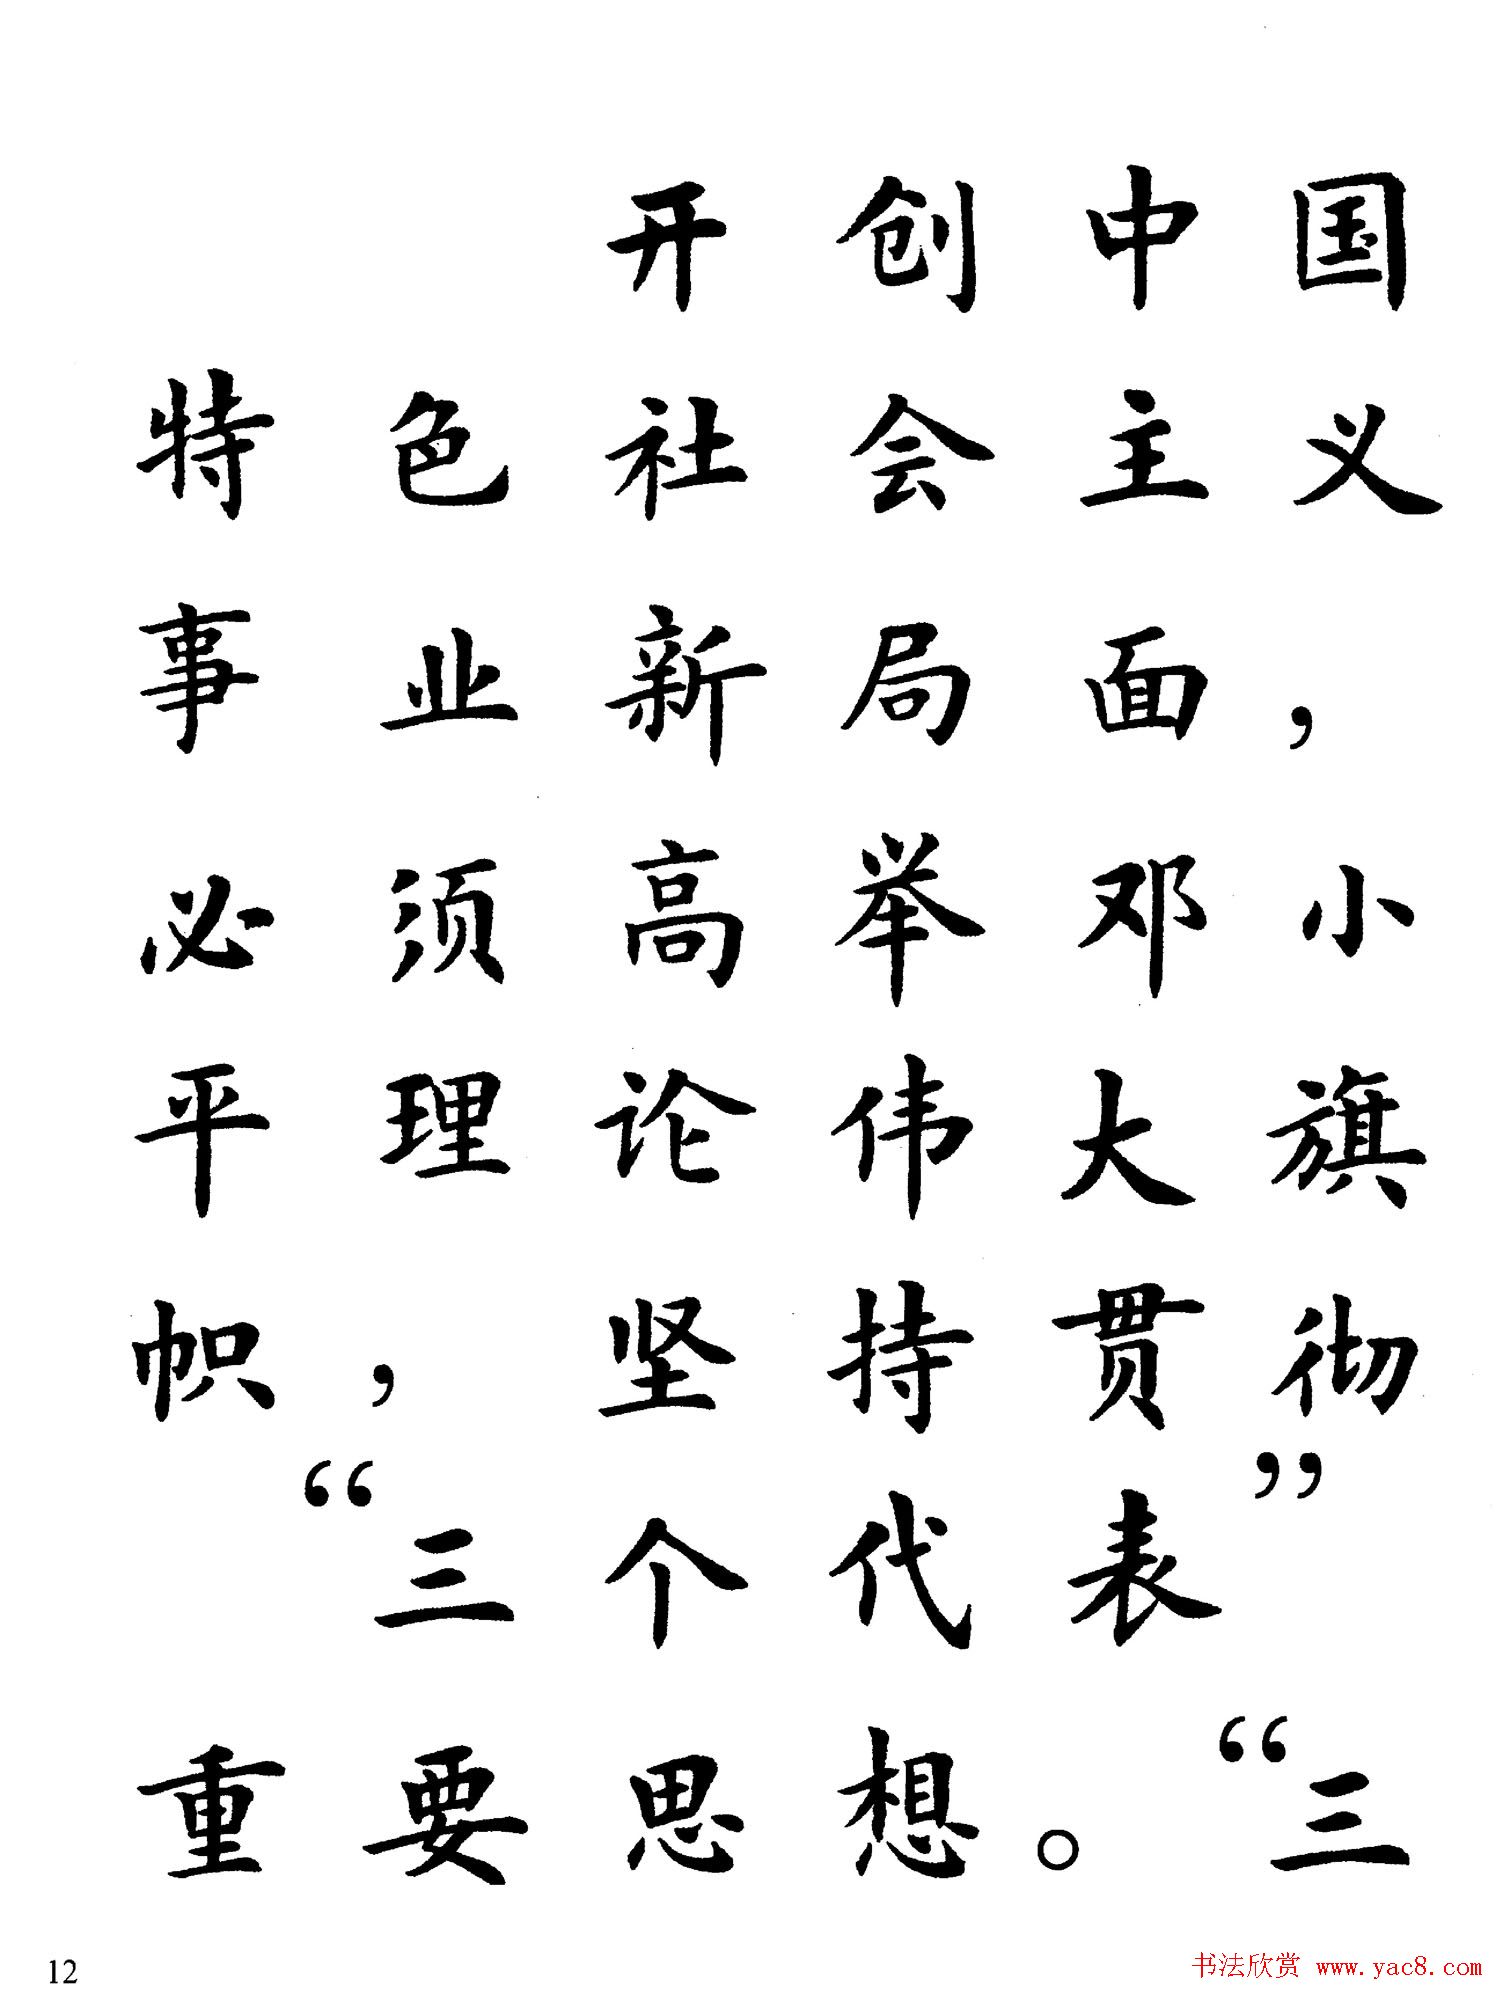 开创中国
特色社会主义
事业新局面，
必须高举邓小
平理论伟大旗
帜，坚持贯彻
“三个代表”
重要思想。“三
12
书法欣赏 www.yac8.com